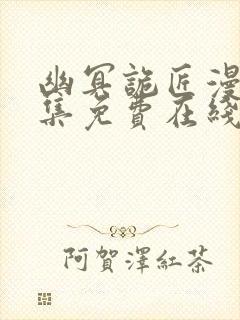 幽冥詭匠漫
集免費在綫
阿賀澤紅茶